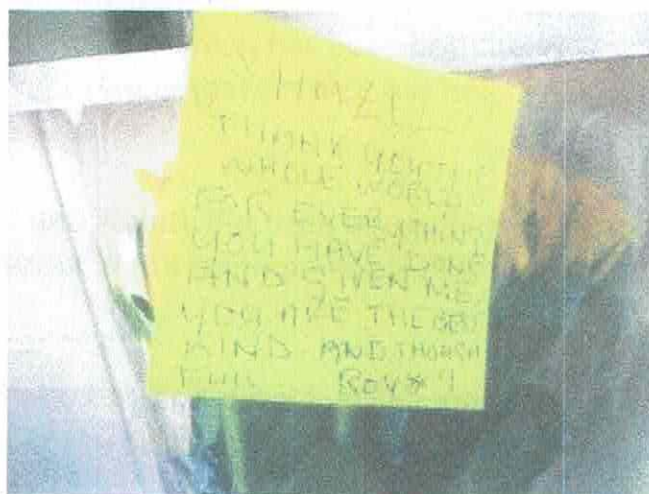 THANK YOU THE
WHOLE WORLD
FOR EVERYTHING
YOU HAVE DONE
AND GIVEN ME.
YOU ARE THE BEST
KIND AND THOUGH
FUL